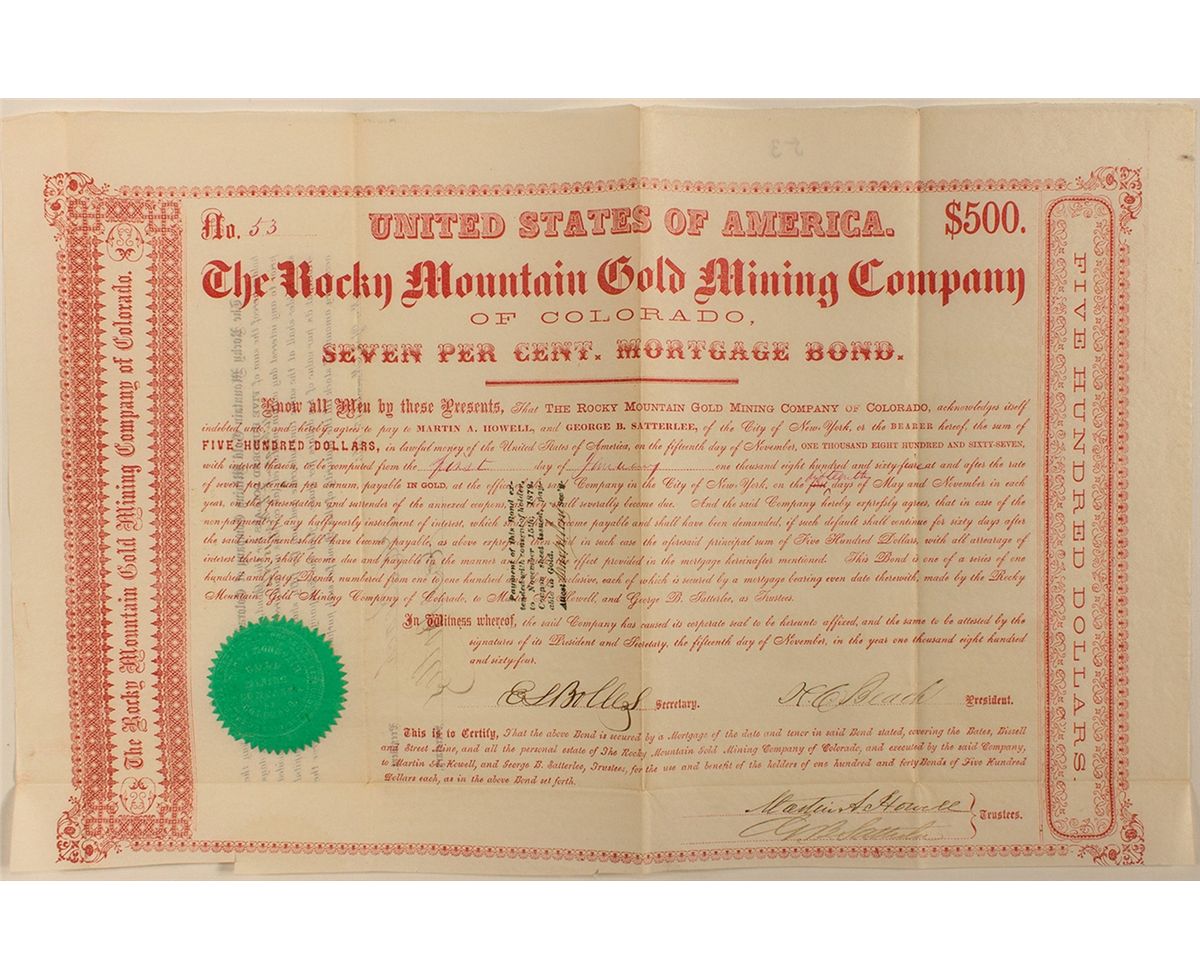 53
No. 53
UNITED STATES OF AMERICA.
$500.
The Rocky Mountain Gold Mining Company
OF COLORADO,
SEVEN PER CENT. MORTGAGE BOND.
Know all Men by these Presents, That THE ROCKY MOUNTAIN GOLD MINING COMPANY OF COLORADO, acknowledges itself
indebted unto, and hereby agrees to pay to MARTIN A. HOWELL, and GEORGE B. SATTERLEE, of the City of New-York, or the BEARER hereof, the sum of
FIVE HUNDRED DOLLARS, in lawful money of the United States of America, on the fifteenth day of November, ONE THOUSAND EIGHT HUNDRED AND SIXTY-SEVEN,
with interest thereon, to be computed from the first day of January one thousand eight hundred and sixty- at and after the rate
of seven per centum per annum, payable IN GOLD, at the office of said Company in the City of New York, on the days of May and November in each
year, on the presentation and surrender of the annexed coupons, as they shall severally become due. And the said Company hereby expressly agrees, that in case of the
non-payment of any half-yearly instalment of interest, which shall become payable and shall have been demanded, if such default shall continue for sixty days after
the said instalment shall have become payable, as above expressed, then and in such case the aforesaid principal sum of Five Hundred Dollars, with all arrearage of
interest thereon, shall become due and payable in the manner and with effect provided in the mortgage hereinafter mentioned. This Bond is one of a series of one
hundred and forty Bonds, numbered from one to one hundred and forty inclusive, each of which is secured by a mortgage bearing even date therewith, made by the Rocky
Mountain Gold Mining Company of Colorado, to Martin A. Howell, and George B. Satterlee, as Trustees.
Payment of this Bond ex-
tended with consent of holder,
to November 15th, 1872,
Coupon sheet annexed, pay-
able in Gold.
Attest
Sec'y.
In Witness whereof, the said Company has caused its corporate seal to be hereunto affixed, and the same to be attested by the
signatures of its President and Secretary, the fifteenth day of November, in the year one thousand eight hundred
and sixty-four.
E S Bolles Secretary.
H C Beach President.
This is to Certify, That the above Bond is secured by a Mortgage of the date and tenor in said Bond stated, covering the Bates, Bissell
and Street Mine, and all the personal estate of The Rocky Mountain Gold Mining Company of Colorado, and executed by the said Company,
to Martin A. Howell, and George B. Satterlee, Trustees, for the use and benefit of the holders of one hundred and forty Bonds of Five Hundred
Dollars each, as in the above Bond set forth.
Martin A Howell
G B Satterlee
Trustees.
The Rocky Mountain Gold Mining Company of Colorado.
FIVE HUNDRED DOLLARS.
GOLD
MINING
COMPANY